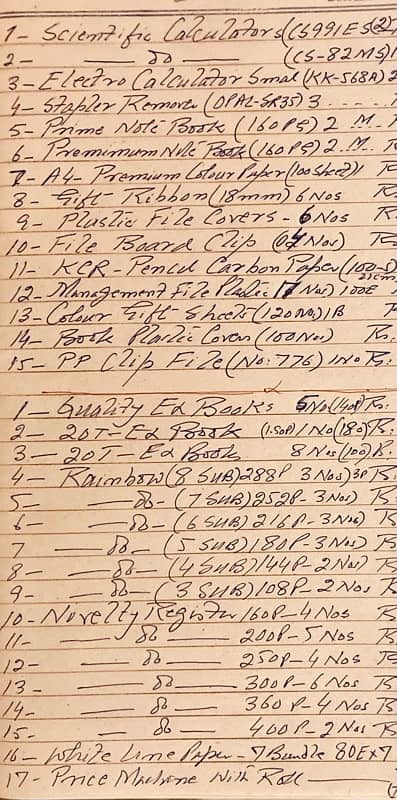 1- Scientific Calculators (CS991ES(2)
2- — do — (CS-82MS)1
3- Electro Calculator Small (KK-568A) 2
4- Stapler Remover (OPAL-SR35) 3 - - - -
5- Prime Note Book (160Pg) 2 M. R
6- Premimum Note Book (160Pg) 2.M. R
7- A4- Premium Colour Paper (100 Sheet)1 R
8- Gift Ribbon (18mm) 6 Nos R
9- Plastic File Covers - 6 Nos R.
10- File Board Clip (07 Nos) Rs
11- KCR- Pencil Carbon Paper (100-S)
21cm
12- Management File Plastic 17 Nos) 100E
13- Colour Gift Sheets (120 No,) 1B Rs
14- Book Plastic Covers (100 Nos) Rs.
15- PP Clip File (No: 776) 1No Rs:
1- Quality Ex Books 5 No (140P) Rs:
2- 20T- Ex Book (1.50P) 1 No (180) Rs.
3- 20T- Ex Books 8 Nos (100) R.
4- Rainbow (8 SUB) 288P 3 Nos) 3P Rs
5- — do — (7 SUB) 252P- 3 Nos) Rs
6- — do — (6 SUB) 216P- 3 Nos) Rs
7 — do — (5 SUB) 180P- 3 Nos) Rs
8- — do — (4 SUB) 144P- 2 Nos) Rs
9- — do — (3 SUB) 108P- 2 Nos Rs
10- Novelty Register 160P- 4 Nos R
11- — do — 200P- 5 Nos R
12- — do — 250P- 4 Nos Rs
13 — do — 300P- 6 Nos Rs
14- — do — 360P- 4 Nos Rs
15- — do — 400P- 2 Nos Rs
16- White Line Paper- 7 Bundle 80Ex7
17- Price Machine With Roll —